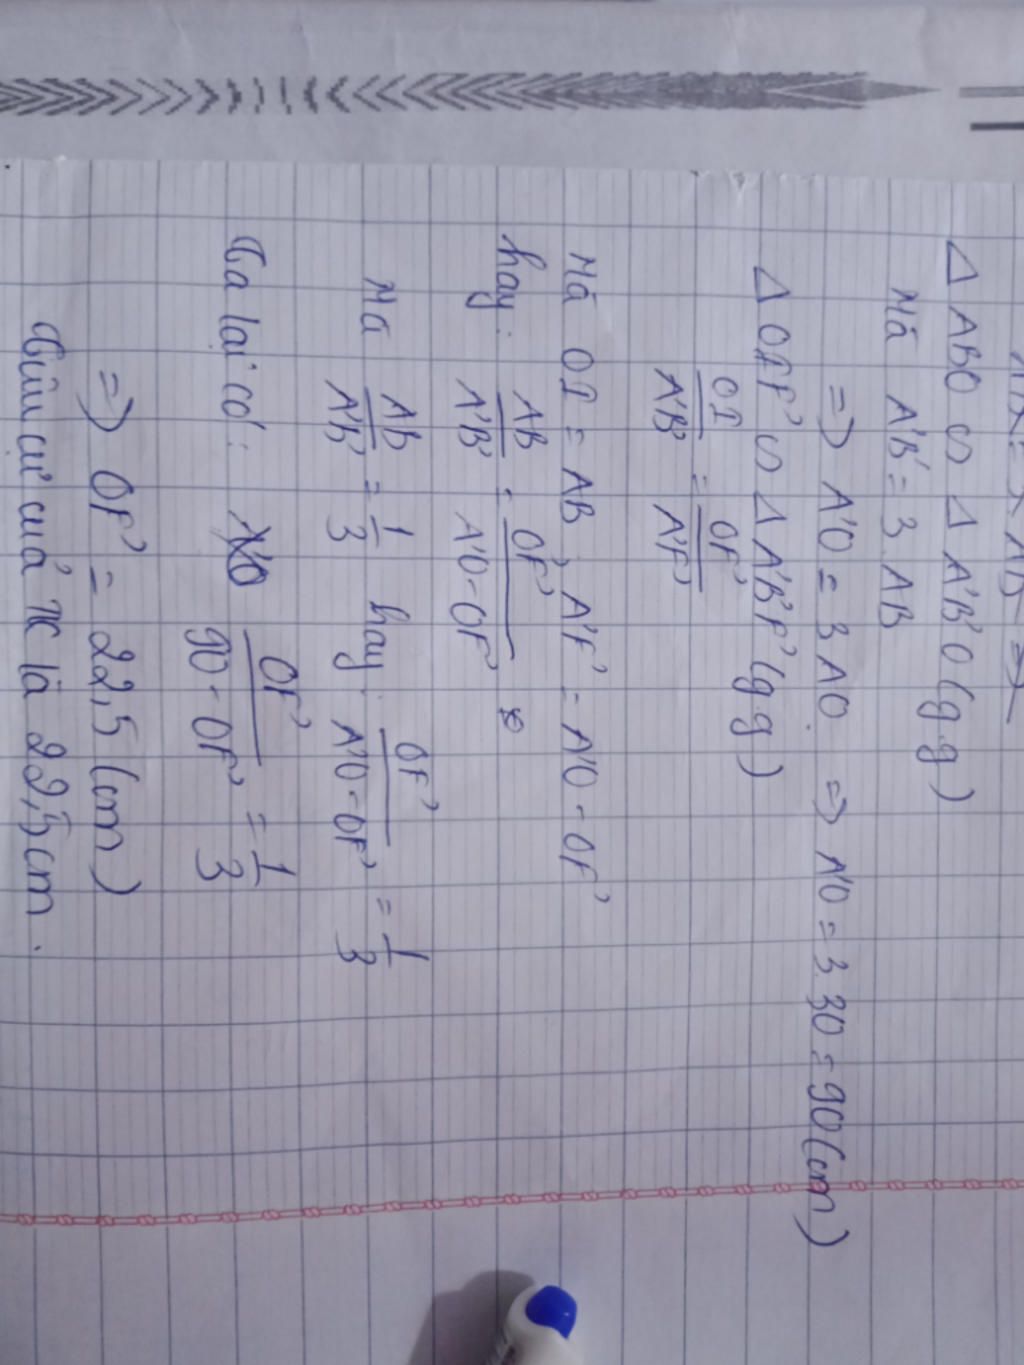 Δ ABO ∽ Δ A'B'O (g.g)
Mà A'B' = 3.AB
=> A'O = 3 AO => A'O = 3.30 = 90 (cm)
Δ OIF' ∽ Δ A'B'F' (g.g)
OI/A'B' = OF'/A'F'
Mà OI = AB, A'F' = A'O - OF'
hay: AB/A'B' = OF'/A'O-OF'
Mà AB/A'B' = 1/3 hay: OF'/A'O-OF' = 1/3
Ta lại có: OF'/90-OF' = 1/3
=> OF' = 22,5 (cm)
Tiêu cự của TK là 22,5cm.